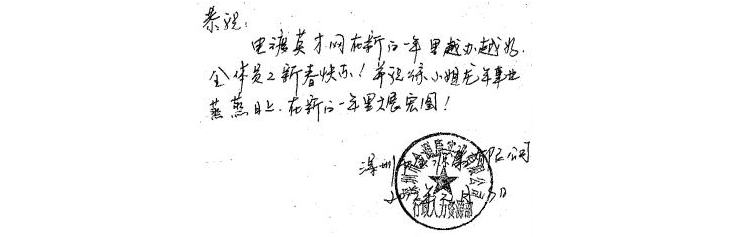 恭祝:
电镀英才网在新的一年里越办越好.
全体员工新春快乐!并祝徐小姐龙年事业
蒸蒸日上.在新的一年里大展宏图!
深圳 有限公司
行政人力资源部